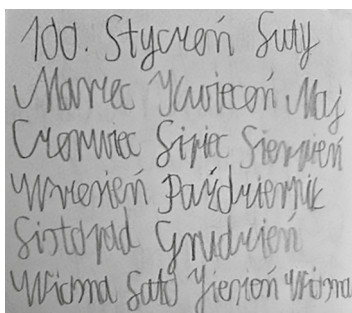 100. Styczeń Luty
Marzec Kwiecień Maj
Czerwiec Lipiec Sierpień
Wrzesień Październik
Listopad Grudzień
Wiosna Lato Jesień Wiosna